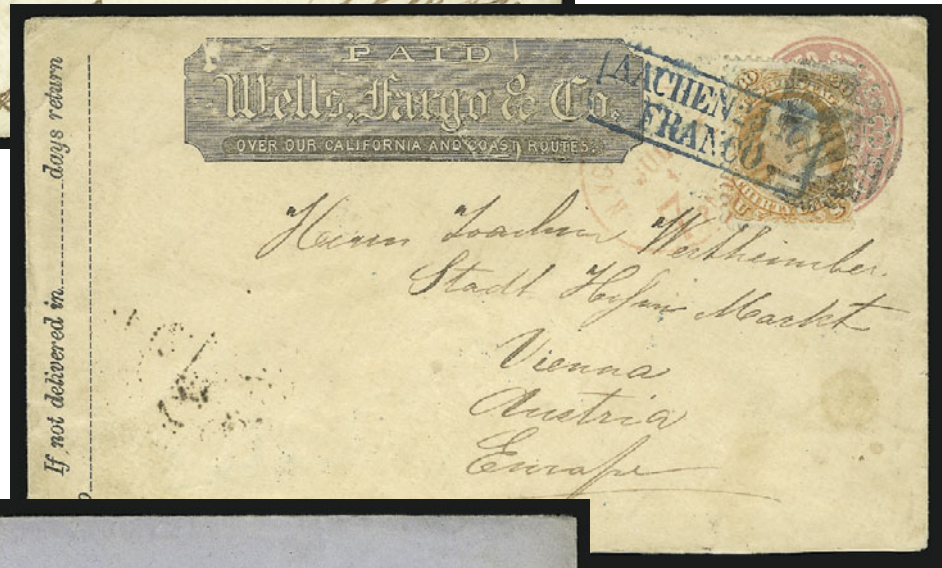 If not delivered in days return
PAID
Wells, Fargo & Co.
OVER OUR CALIFORNIA AND COAST ROUTES.
AACHEN
FRANCO
Herrn Joachim Wertheimber
Stadt Markt
Vienna
Austria
Europe